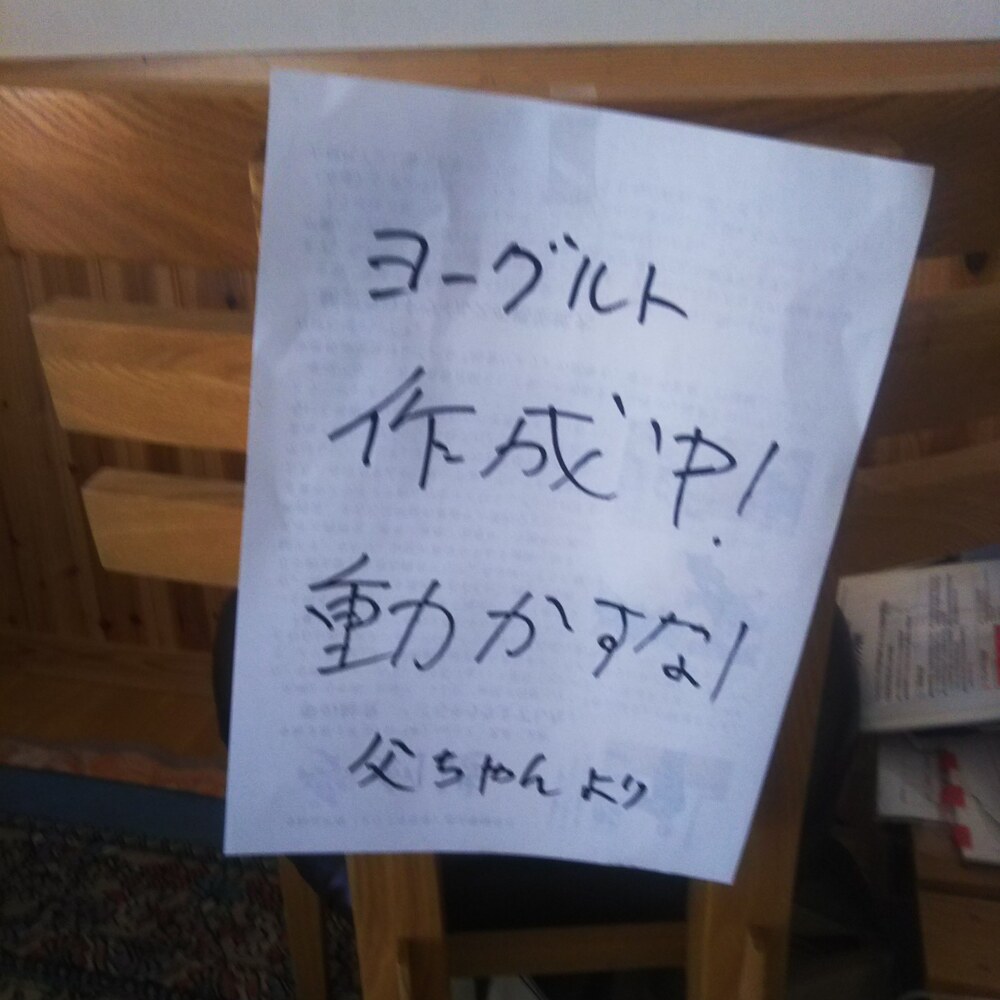 ヨーグルト
作成中!
動かすな!
父ちゃんより